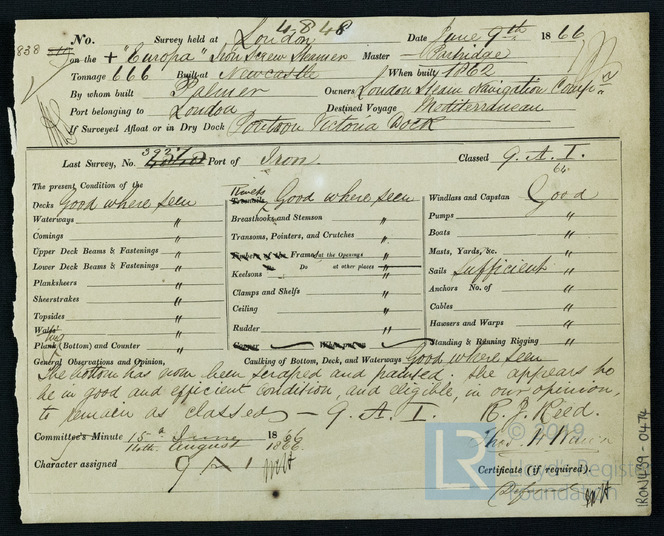 4848
No. Survey held at London Date June 9th 1866
838
on the + "Europa" Iron Screw Steamer Master Partridge
Tonnage 666 Built at Newcastle When built 1862
By whom built Palmer Owners London Steam Navigation Compy
Port belonging to London Destined Voyage Mediterranean
If Surveyed Afloat or in Dry Dock Pontoon Victoria Dock
Last Survey, No. 3937 Port of Iron Classed 9. A. 1.
64
The present Condition of the
Decks Good where seen
Waterways "
Comings "
Upper Deck Beams & Fastenings "
Lower Deck Beams & Fastenings "
Planksheers "
Sheerstrakes "
Topsides "
Wales "
Plank (Bottom) and Counter "
Rivets Good where seen
Treenails
Breasthooks and Stemson "
Transoms, Pointers, and Crutches "
Timbers of the Frame at the Openings "
Do at other places "
Keelsons "
Clamps and Shelfs "
Ceiling "
Rudder "
Copper
Windlass and Capstan Good
Pumps "
Boats "
Masts, Yards, &c. "
Sails Sufficient
Anchors No. of "
Cables "
Hawsers and Warps "
Standing & Running Rigging "
General Observations and Opinion, Caulking of Bottom, Deck, and Waterways Good where seen
The bottom has now been scraped and painted, she appears to
be in good and efficient condition, and eligible, in our opinion,
to remain as classed — 9. A. 1. R. J. Reed.
Committee's Minute 15th June 1866
14th August 1866
Character assigned 9 A 1
Certificate (if required).
© 2019
LR
Lloyd's Register
Foundation
IRON439-0474